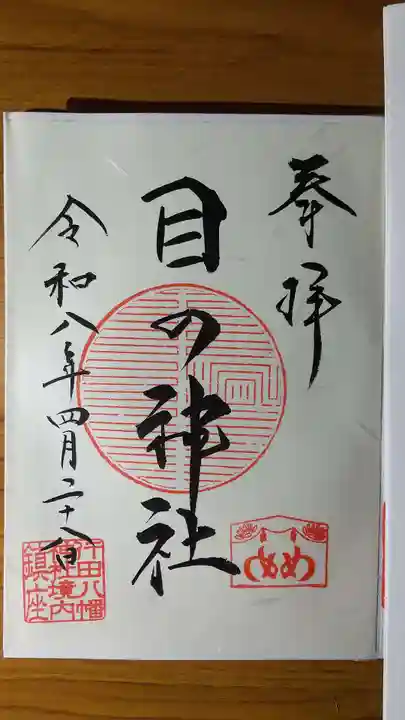 奉拝
目の神社
令和八年四月二十八日
牛田八幡
宮神社境内
鎮座
めめ